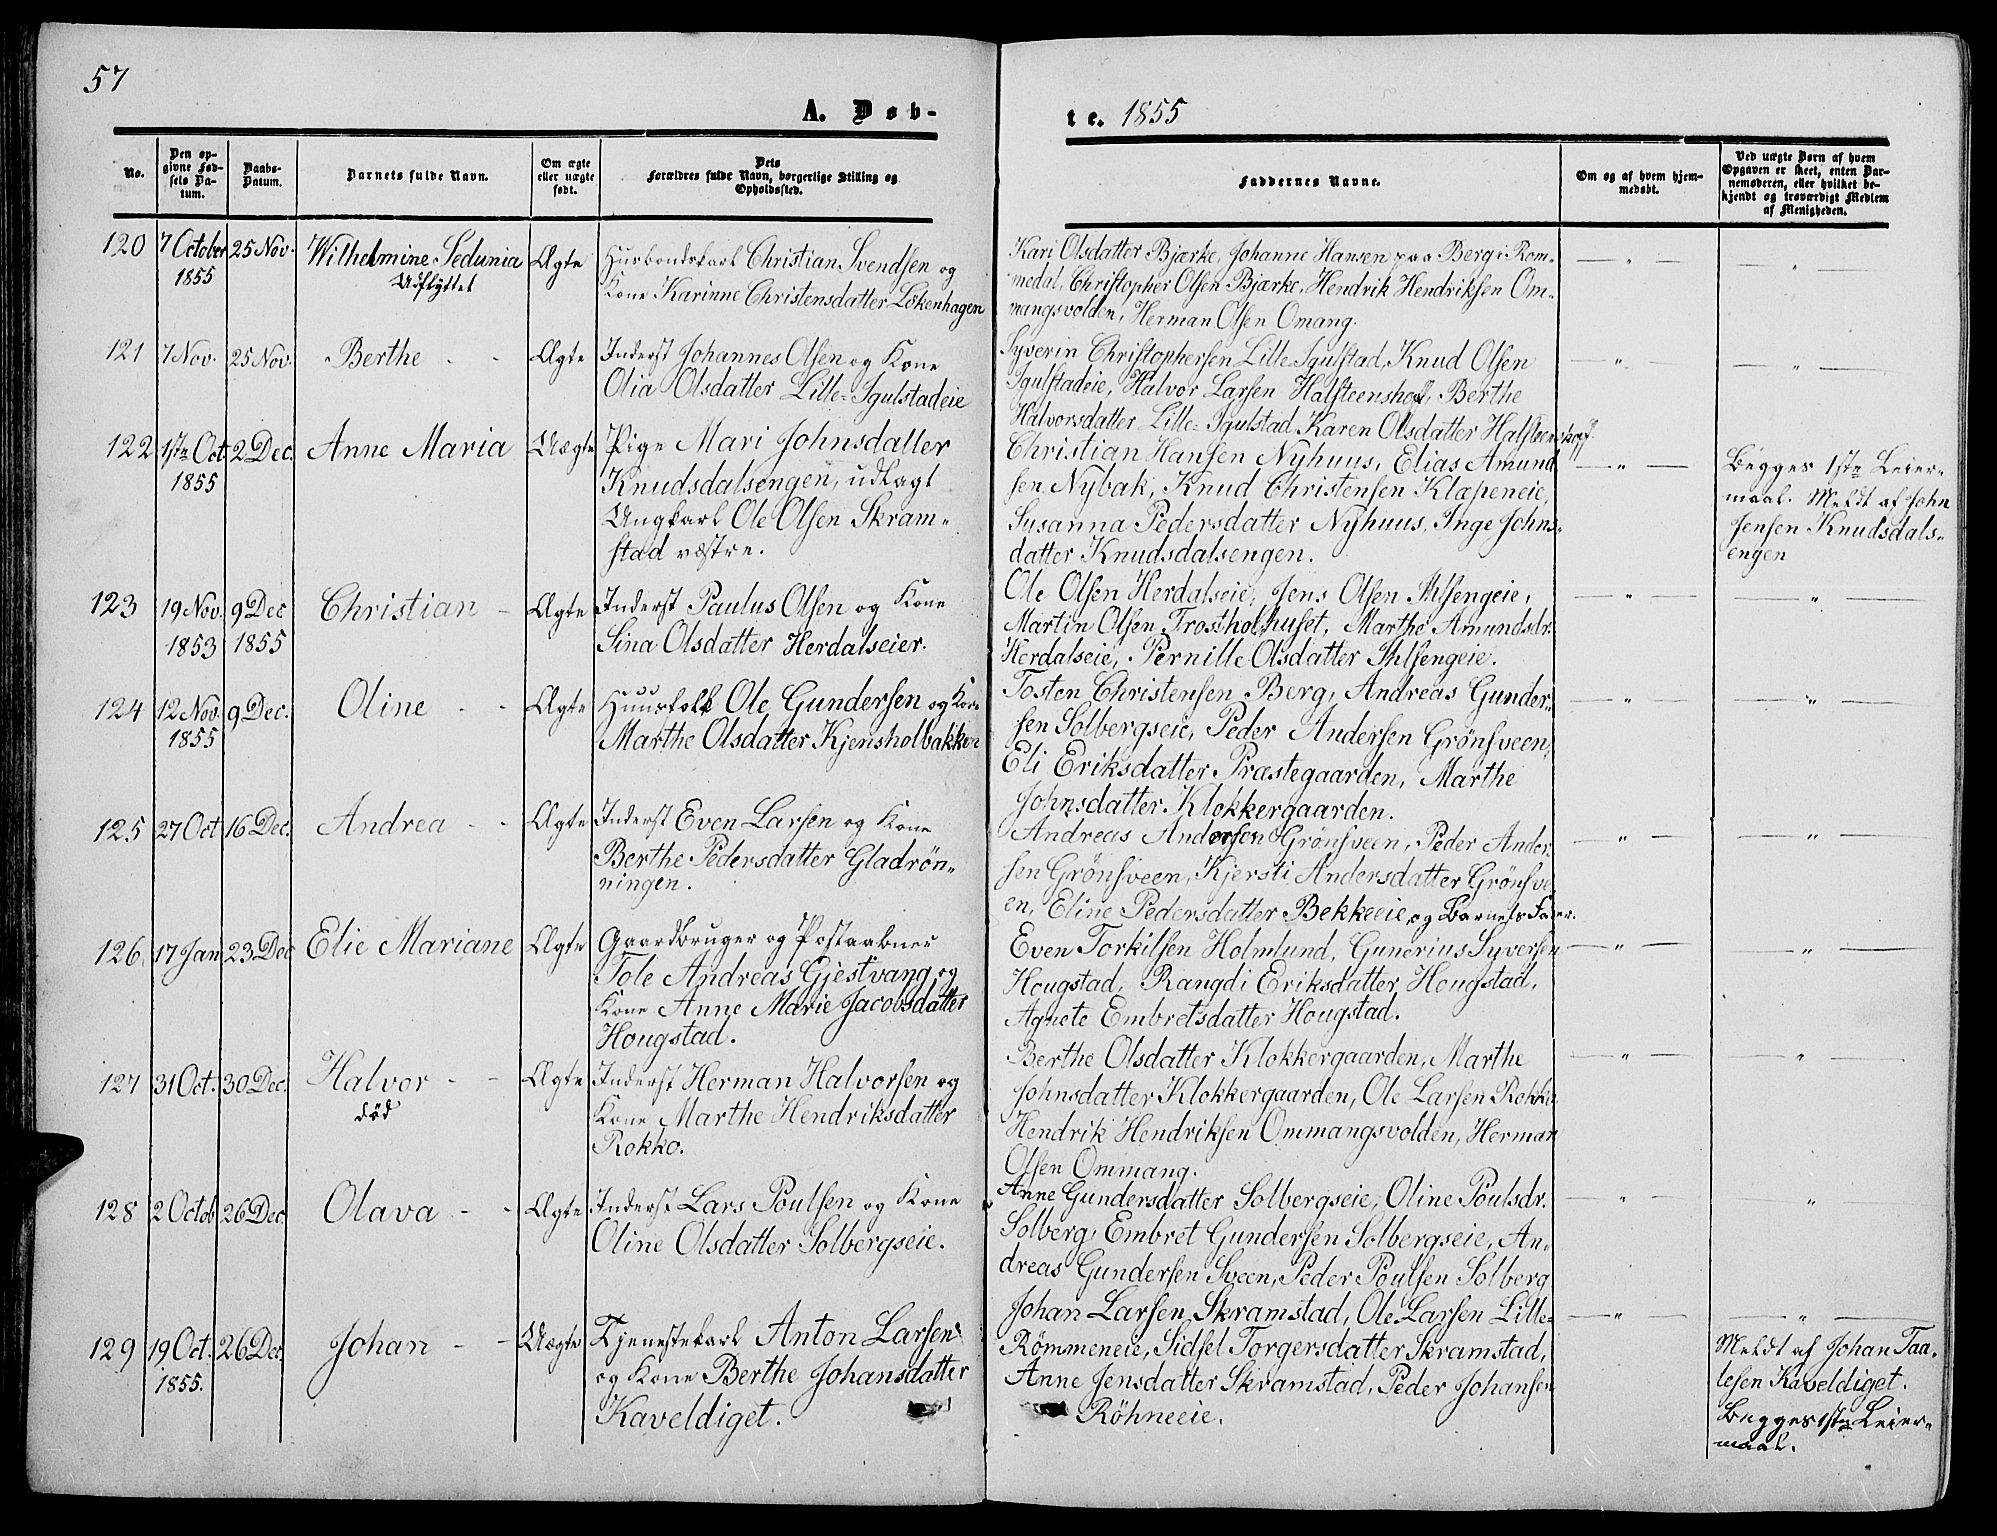 57
A. Døb-
te. 1855
No.
Den op-
givne Fød-
sels Da-
tum.
Daabs-
Datum.
Barnets fulde Navn.
Om ægte
eller uægte
født.
Dets
Forældres fulde Navn, borgerlige Stilling og
Opholdssted.
Faddernes Navne.
Om og af hvem hjem-
medøbt.
Ved uægte Børn af hvem
Opgaven er skeet, enten Bar-
nemoderen, eller hvilket be-
kjendt og troværdigt Medlem
af Menigheden.
120 7 October 25 Nov. Wilhelmine Sedunia Ægte
1855 Udflyttet
Husbondskarl Christian Svendsen og
Kone Karinne Christensdatter Lökenhagen
Kari Olsdatter Bjærke, Johanne Hansen paa Berg i Rom-
medal, Christopher Olsen Bjærke, Hendrik Hendriksen Om-
mangsvolden, Herman Olsen Omang.
— " — — " —
121 7 Nov. 25 Nov. Berthe - - Ægte
Inderst Johannes Olsen og Kone
Olia Olsdatter Lille-Igulstadeie
Syverin Christophersen Lille Igulstad, Knud Olsen
Igulstadeie, Halvor Larsen Halsteenshof, Berthe
Halvorsdatter Lille-Igulstad Karen Olsdatter Halsteenshoff.
— " — — " —
122 1ste Oct. 2 Dec. Anne Maria Uægte
1855
Pige Mari Johnsdatter
Knudsdalsengen, udlagt
Ungkarl Ole Olsen Skram-
stad vestre.
Christian Hansen Nyhuus, Elias Amund-
sen Nybak, Knud Christensen Klæpeneie,
Susanna Pedersdatter Nyhuus, Inge Johns-
datter Knudsdalsengen.
— " —
Begges 1ste Leier-
maal. Meldt af John
Jensen Knudsdals-
engen
123 19 Nov. 9 Dec Christian - Ægte
1853 1855
Inderst Paulus Olsen og Kone
Sina Olsdatter Herdalseier.
Ole Olsen Herdalseie, Jens Olsen
Martin Olsen Trostholhuset, Marthe Amundsdr.
Herdalseie, Pernille Olsdatter
— " — — " —
124 12 Nov. 9 Dec. Oline - - Ægte
1855
Huusfolk Ole Gundersen og Kone
Marthe Olsdatter Kjensholbakken
Tosten Christensen Berg, Andreas Gunder-
sen Solbergseie, Peder Andersen Grönsveen,
Eli Eriksdatter Præstegaarden, Marthe
Johnsdatter Klokkergaarden.
— " — — " —
125 27 Oct 16 Dec. Andrea - - Ægte
Inderst Even Larsen og Kone
Berthe Pedersdatter Gladrön-
ningen.
Andreas Andersen Grönsveen, Peder Ander-
sen Grönsveen, Kjersti Andersdatter Grönsve-
en, Eline Pedersdatter Bekkeeie og Barnets Fader.
— " — — " —
126. 17 Jan 23 Dec Elie Mariane Ægte
Gaardbruger og Postaabner
Tole Andreas Gjestvang og
Kone Anne Marie Jacobsdatter
Hougstad.
Even Torkilsen Holmlund, Gunerius Syversen
Hougstad, Rangdi Eriksdatter Hougstad,
Agnete Embretsdatter Hougstad.
— " — — " —
127 31 Oct. 30 Dec. Halvor - - Ægte
död
Inderst Herman Halvorsen og
Kone Marthe Hendriksdatter
Rokko.
Berthe Olsdatter Klokkergaarden, Marthe
Johnsdatter Klokkergaarden, Ole Larsen Rokko
Hendrik Hendriksen Ommangsvolden, Herman
Olsen Ommang.
— " — — " —
128 2 Octob 26 Dec. Olava - - Ægte
Inderst Lars Poulsen og Kone
Oline Olsdatter Solbergseie.
Anne Gundersdatter Solbergseie, Oline Poulsdr.
Solberg, Embret Gundersen Solbergseie, An-
dreas Gundersen Sveen, Peder Poulsen Solberg
— " — "
129 19 Oct. 26 Dec. Johan - - Uægte
1855.
Tjenestekarl Anton Larsen
og Kone Berthe Johansdatter
Kaveldiget.
Johan Larsen Skramstad, Ole Larsen Lille-
Römmeneie, Sidsel Torgersdatter Skramstad,
Anne Jensdatter Skramstad, Peder Johansen
Röhneeie.
— " — — " —
Meldt af Johan Taa-
lesen Kaveldiget.
Begges 1ste Leier-
maal.